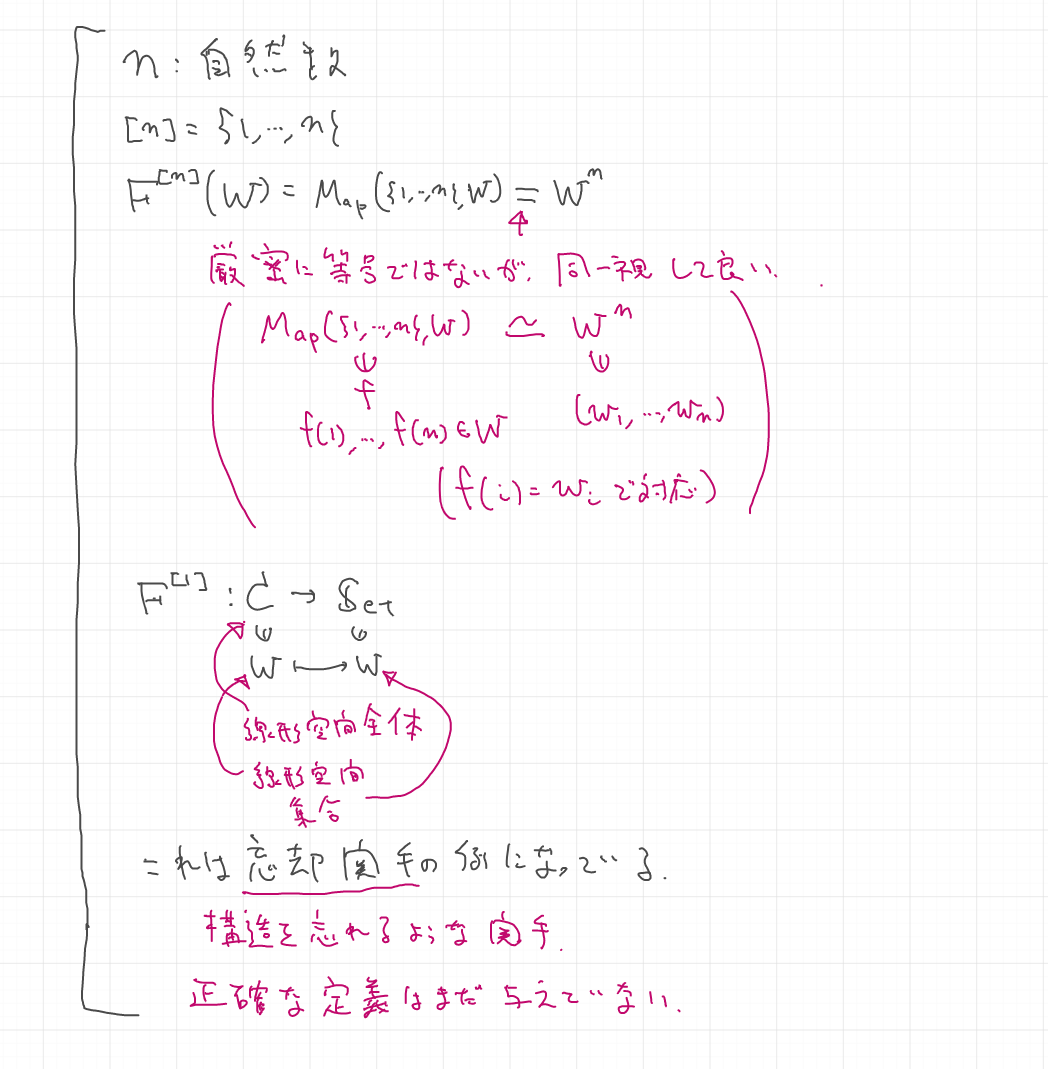 n : 自然数
[n] = {1, …, n}
F^[n](W) = Map({1, …, n}, W) = W^n
↑
厳密に等号ではないが, 同一視して良い.
Map({1, …, n}, W) ≃ W^n
∪ ∪
f (w₁, …, wₙ)
f(1), …, f(n) ∈ W
(f(i) = wᵢ で対応)
F^[1] : C → Set
∪ ∪
W ⟼ W
線形空間全体
線形空間
集合
これは 忘却関手の例になっている.
構造を忘れるような関手.
正確な定義はまだ与えていない.